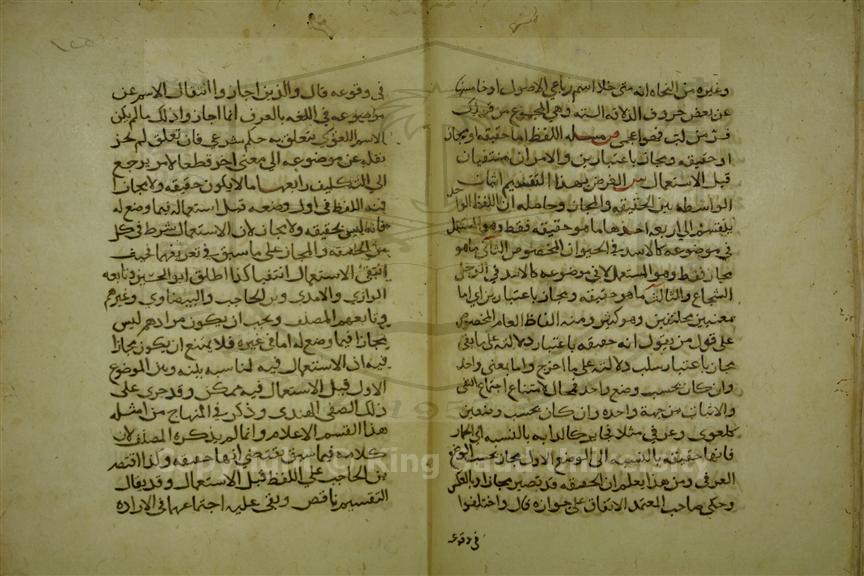 وغيره من النحاه انه متى خلا اسم رباعي الاصول او خماسيها
عن بعض حروف الذلاقه الستة وهي المجموع من قولك
فر من لب فهو اعجمي ص مسله اللفظ اما حقيقه او مجاز
او حقيقه ومجاز باعتبارين والامران منتفيان
قبل الاستعمال ش الغرض بهذا التقسيم اثبات
الواسطه بين الحقيقه والمجاز وحاصله ان اللفظ الواحد
ينقسم الى اربعه احدها ما هو حقيقه فقط وهو المستعمل
في موضوعه كالاسد في الحيوان المخصوص الثاني ما هو
مجاز فقط وهو المستعمل لا في موضوعه كالاسد في الرجل
الشجاع والثالث ما هو حقيقه ومجاز باعتبارين اي اما
بمعنيين مختلفين وهو كثير ومنه الفاظ العام المخصوص
على قول من يقول انه حقيقه باعتبار دلالته على ما بقي
مجاز باعتبار سلب دلالته على ما اخرج واما بمعنى واحد
وان كان بحسب وضع واحد فمحال لامتناع اجتماع النفي
والاثبات من جهة واحده وان كان بحسب وضعين
كلغوي وعرفي مثلا فجايز كالدابه بالنسبه الى الحمار
فانها حقيقه بالنسبه الى الوضع الاول مجاز بحسب الوضع
العرفي ومن هذا يعلم ان الحقيقه قد تصير مجازا وبالعكس
وحكى صاحب المعتمد الاتفاق على جوازه قال واختلفوا
في وقوعه
في وقوعه قال والذين اجازوا انتقال الاسم عن
موضوعه في اللغه بالعرف انما اجازوا ذلك ما لم يكن
الاسم اللغوي يتعلق به حكم شرعي فان تعلق لم يجز
نقله عن موضوعه الى معنى اخر قطعا لامر يرجع
الى التكليف رابعها ما لا يكون حقيقه ولا مجازا
فمنه اللفظ في اول وضعه قبل استعماله فيما وضع له
فانه ليس بحقيقه ولا مجاز لان الاستعمال شرط في كل
من الحقيقه والمجاز على ما سبق في تعريفهما فحيث
انتفى الاستعمال انتفيا كذا اطلق ابو الحسين وتابعه
الرازي والامدي وبن الحاجب والبيضاوي وغيرهم
وتابعهم المصنف ويجب ان يكون مرادهم ليس
بمجاز فيما وضع له اما في غيره فلا يمتنع ان يكون مجازا
فيه ان الاستعمال فيه لمناسبه بينه وبين الموضوع
الاول قبل الاستعمال فيه ممكن وقد جرى على
ذلك الصفي الهندي وذكر في المنهاج من امثله
هذا القسم الاعلام وانما لم يذكره المصنف لان
كلامه فيما سبق يقتضي انها حقيقه وكذا اقتصر
بن الحاجب على اللفظ قبل الاستعمال وقد يقال
التقسيم ناقص وبقي عليه اجتماعهما في الاراده